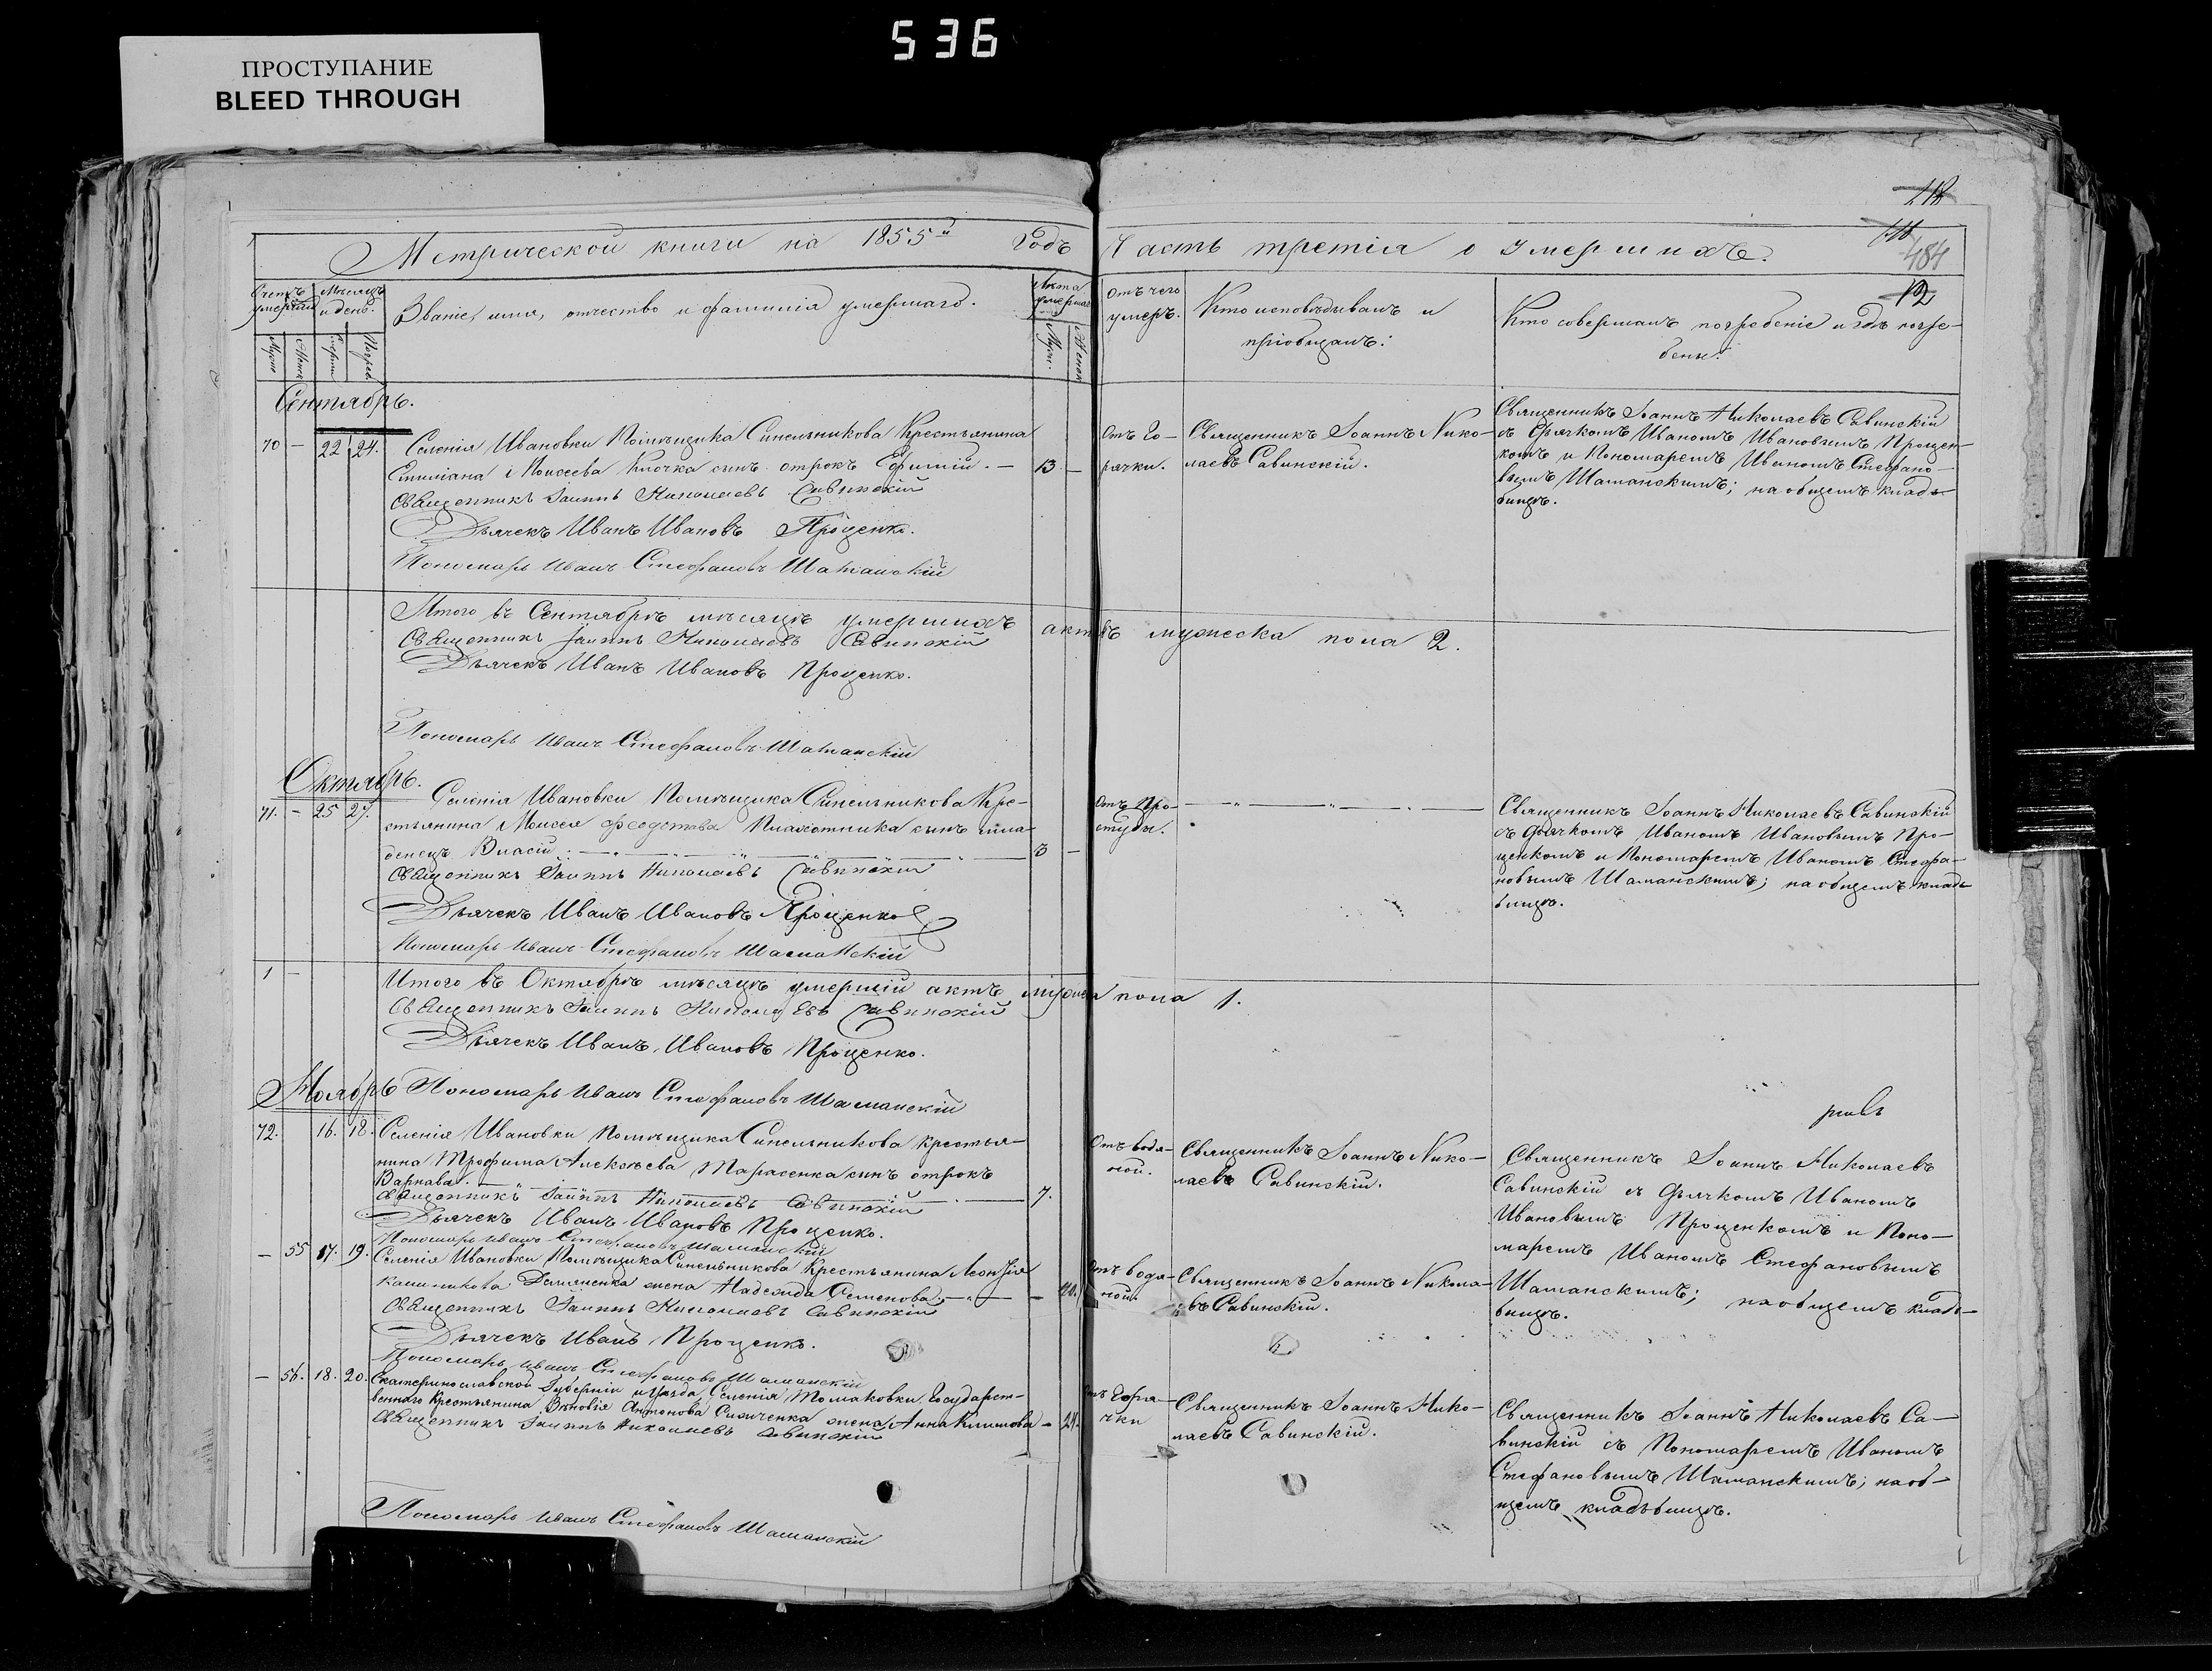 536
ПРОСТУПАНИЕ
BLEED THROUGH
484
12
Метрической книги на 1855й Годъ Часть третія о умершихъ.
Счетъ умершихъ
Мѣсяцъ и день.
Званіе, имя, отчество и фамилія умершаго.
Лѣта умершаго
Отъ чего умеръ.
Кто исповѣдывалъ и
пріобщалъ:
Кто совершалъ погребеніе и гдѣ погре-
бены:
Муж.
Женск
Сентябрь.
70 – 22 24. Селенія Ивановки Помѣщика Синельникова Крестьянина
Емиліана Моисеева Клочка сынъ отрокъ Ефимій. – 13. –
Отъ Го-
рячки.
Священникъ Іоаннъ Нико-
лаевъ Савинскій.
Священникъ Іоаннъ Николаевъ Савинскій
съ Дьячкомъ Иваномъ Ивановымъ Процен-
комъ и Пономаремъ Иваномъ Стефано-
вымъ Шаманскимъ; на общемъ кладь-
бищѣ.
Священникъ Іоаннъ Николаевъ Савинскій
Дьячекъ Иванъ Ивановъ Проценко.
Пономарь Иванъ Стефановъ Шаманскій
Итого въ Сентябрѣ мѣсяцѣ умершихъ актовъ мужеска пола 2.
Священникъ Іоаннъ Николаевъ Савинскій
Дьячекъ Иванъ Ивановъ Проценко.
Пономарь Иванъ Стефановъ Шаманскій
Октябрь.
71. – 25 27. Селенія Ивановки Помѣщика Синельникова Кре-
стьянина Моисея сынъ мла-
денецъ Власій. 3 –
Отъ Про-
студы.
Священникъ Іоаннъ Николаевъ Савинскій
съ Дьячкомъ Иваномъ Ивановымъ Про-
ценкомъ и Пономаремъ Иваномъ Стефа-
новымъ Шаманскимъ; на общемъ кладь-
бищѣ.
Священникъ Іоаннъ Николаевъ Савинскій
Дьячекъ Иванъ Ивановъ Проценко
Пономарь Иванъ Стефановъ Шаманскій
1 –
Итого въ Октябрѣ мѣсяцѣ умершій актъ мужеска пола 1.
Священникъ Іоаннъ Николаевъ Савинскій
Дьячекъ Иванъ Ивановъ Проценко.
Ноябрь
Пономарь Иванъ Стефановъ Шаманскій
72. 16. 18. Селенія Ивановки Помѣщика Синельникова крестья-
нина Трофима Алексѣева Тарасенка сынъ отрокъ
Варнава. 7.
Отъ водя-
ной.
Священникъ Іоаннъ Нико-
лаевъ Савинскій.
Священникъ Іоаннъ Николаевъ
Савинскій съ Дьячкомъ Иваномъ
Ивановымъ Проценкомъ и Поно-
маремъ Иваномъ Стефановымъ
Шаманскимъ; на общемъ кладь-
бищѣ.
Священникъ Іоаннъ Николаевъ Савинскій
Дьячекъ Иванъ Ивановъ Проценко.
Пономарь Иванъ Стефановъ Шаманскій
– 55 17. 19. Селенія Ивановки Помѣщика Синельникова Крестьянина Леонтія
Демяненка жена Надежда Семенова. –
Отъ водя-
ной.
Священникъ Іоаннъ Никола-
евъ Савинскій.
Священникъ Іоаннъ Николаевъ Савинскій
Дьячекъ Иванъ Проценко.
Пономарь Иванъ Стефановъ Шаманскій
– 56. 18. 20. Екатеринославской Губерніи и уѣзда Селенія Томаковки Государст-
веннаго Крестьянина Антонова жена Анна Климова –
Отъ Горя-
чки
Священникъ Іоаннъ Нико-
лаевъ Савинскій.
Священникъ Іоаннъ Николаевъ Са-
винскій съ Пономаремъ Иваномъ
Стефановымъ Шаманскимъ; на об-
щемъ кладьбищѣ.
Священникъ Іоаннъ Николаевъ Савинскій
Пономарь Иванъ Стефановъ Шаманскій